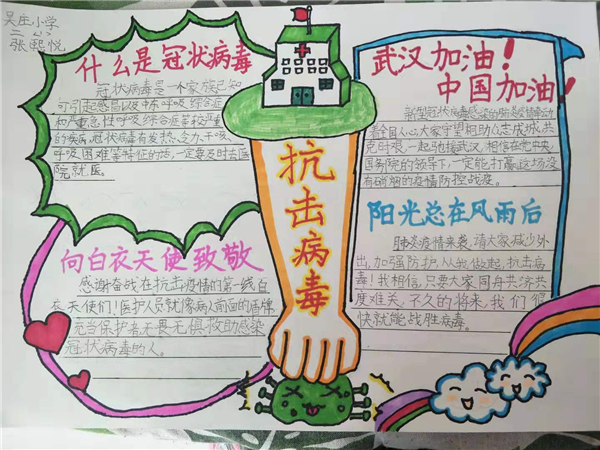 吴庄小学
张熙悦
什么是冠状病毒
冠状病毒是一个家族已知
可引起感冒以及中东呼吸综合症
和严重急性呼吸综合症等较严重
的疾病,冠状病毒有发热、乏力、干咳、
呼吸困难等等症的话,一定要及时去医
院就医。
抗击病毒
武汉加油!
中国加油!
新型冠状病毒感染的肺炎疫情牵动
着全国人心,大家守望相助众志成城,共
克时艰,一起驰援武汉,相信在党中央
国务院的领导下,一定能打赢这场没
有硝烟的疫情防控战役。
向白衣天使致敬
感谢奋战在抗击疫情的第一线白
衣天使们!医护人员就像病人前面的盾牌
充当保护者不畏无惧救助感染
冠状病毒的人。
阳光总在风雨后
肺炎疫情来袭,请大家减少外
出,加强防护,从我做起,抗击病
毒!我相信,只要大家同舟共济共
度难关,不久的将来,我们很
快就能战胜病毒。